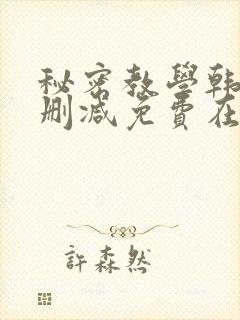 秘密教學韩
删减免費在
許森然